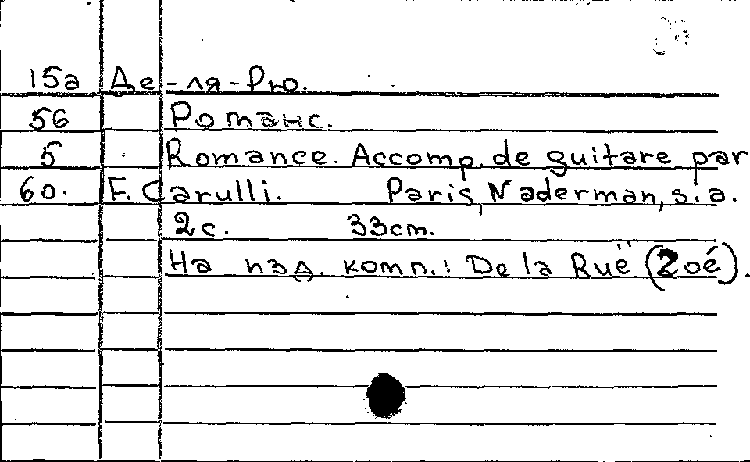 15а Де-ля-Рю.
5б Романс.
5 Romance. Accomp. de guitare par
60. F. Carulli. Paris, Naderman, s.a.
2с. 33cm.
На изд. комп.: De la Ruë (Zoé).